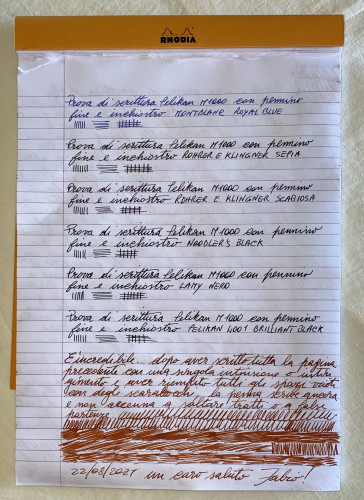 RHODIA
Prova di scrittura Pelikan M1000 con pennino
fine e inchiostro MONTBLANC ROYAL BLUE
Prova di scrittura Pelikan M1000 con pennino
fine e inchiostro ROHRER E KLINGNER SEPIA
Prova di scrittura Pelikan M1000 con pennino
fine e inchiostro ROHRER E KLINGNER SCABIOSA
Prova di scrittura Pelikan M1000 con pennino
fine e inchiostro NOODLER'S BLACK
Prova di scrittura Pelikan M1000 con pennino
fine e inchiostro LAMY NERO
Prova di scrittura Pelikan M1000 con pennino
fine e inchiostro PELIKAN 4001 BRILLIANT BLACK
E' incredibile... dopo aver scritto tutta la pagina
precedente con una singola intinsione o intin
gimento e aver riempito tutti gli spazi vuoti
con degli scarabocchi la penna scrive ancora
e non accenna a saltare tratti o a false
partenze
22/05/2021 un caro saluto Fabio!